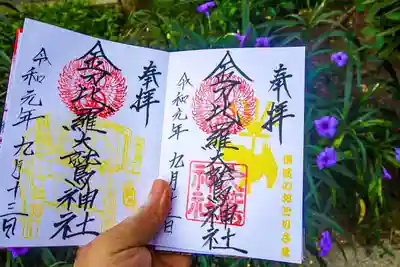 奉拝
金刀比羅大鷲神社
令和元年 九月
奉拝
金刀比羅大鷲神社
令和元年 九月十三日